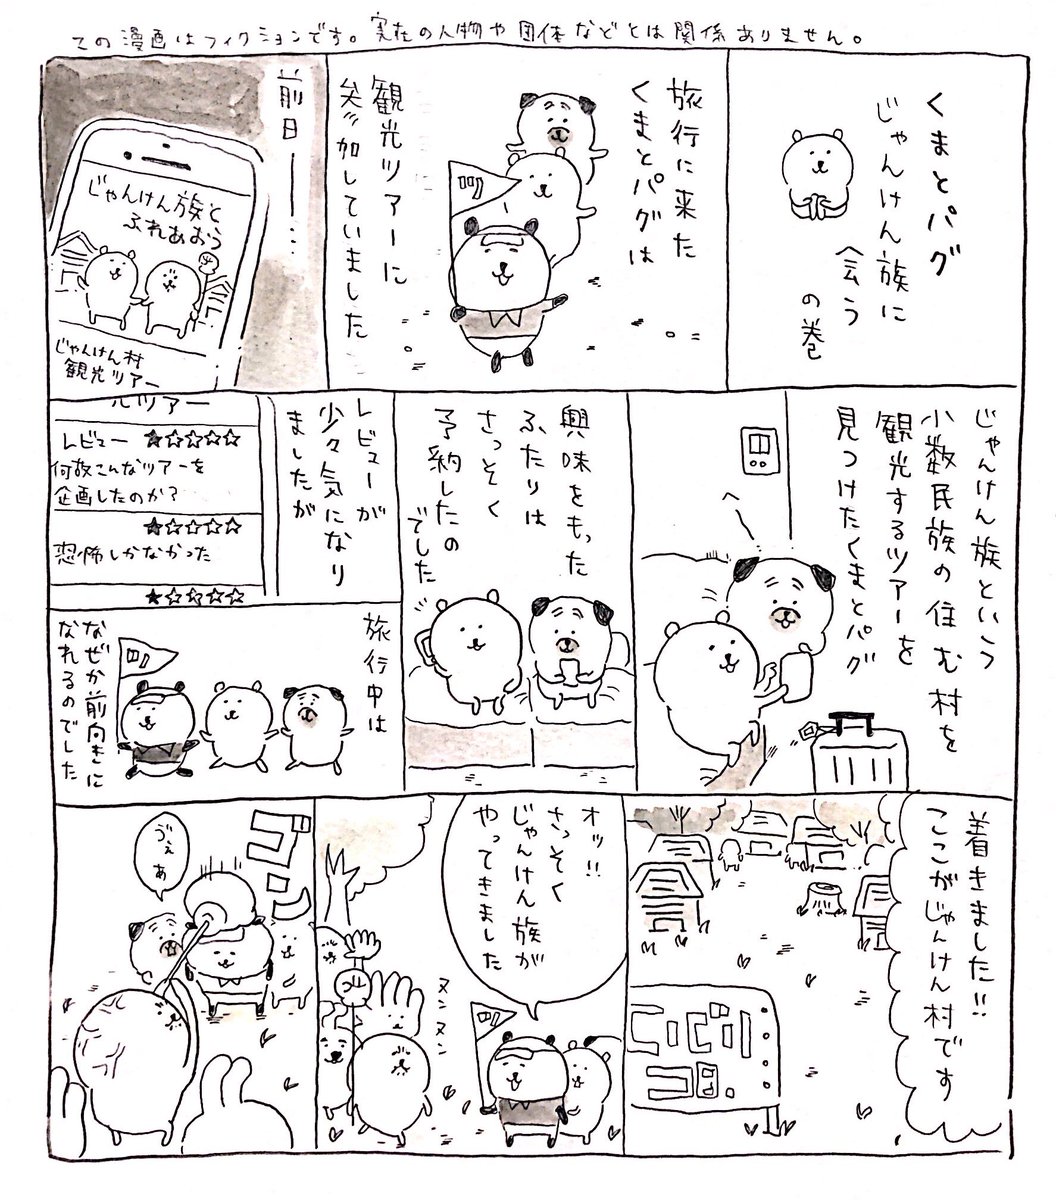 この漫画はフィクションです。実在の人物や団体などとは関係ありません。
くまとパグ
じゃんけん族に
会う
の巻
旅行に来た
くまとパグは
観光ツアーに
参加していました
ツ
前日―…
じゃんけん族と
ふれあおう
じゃんけん村
観光ツアー
じゃんけん族という
小数民族の住む村を
観光するツアーを
見つけたくまとパグ
へ〜
興味をもった
ふたりは
さっそく
予約したの
でした
レビューが
少々気になり
ましたが
ルツアー
レビュー ★☆☆☆☆
何故こんなツアーを
企画したのか?
★☆☆☆☆
恐怖しかなかった
★☆☆☆☆
旅行中は
なぜか前向きに
なれるのでした
着きました!!
ここがじゃんけん村です
オッ!!
さっそく
じゃんけん族が
やってきました
ヌンヌン
ゴン
ゔぇぁ